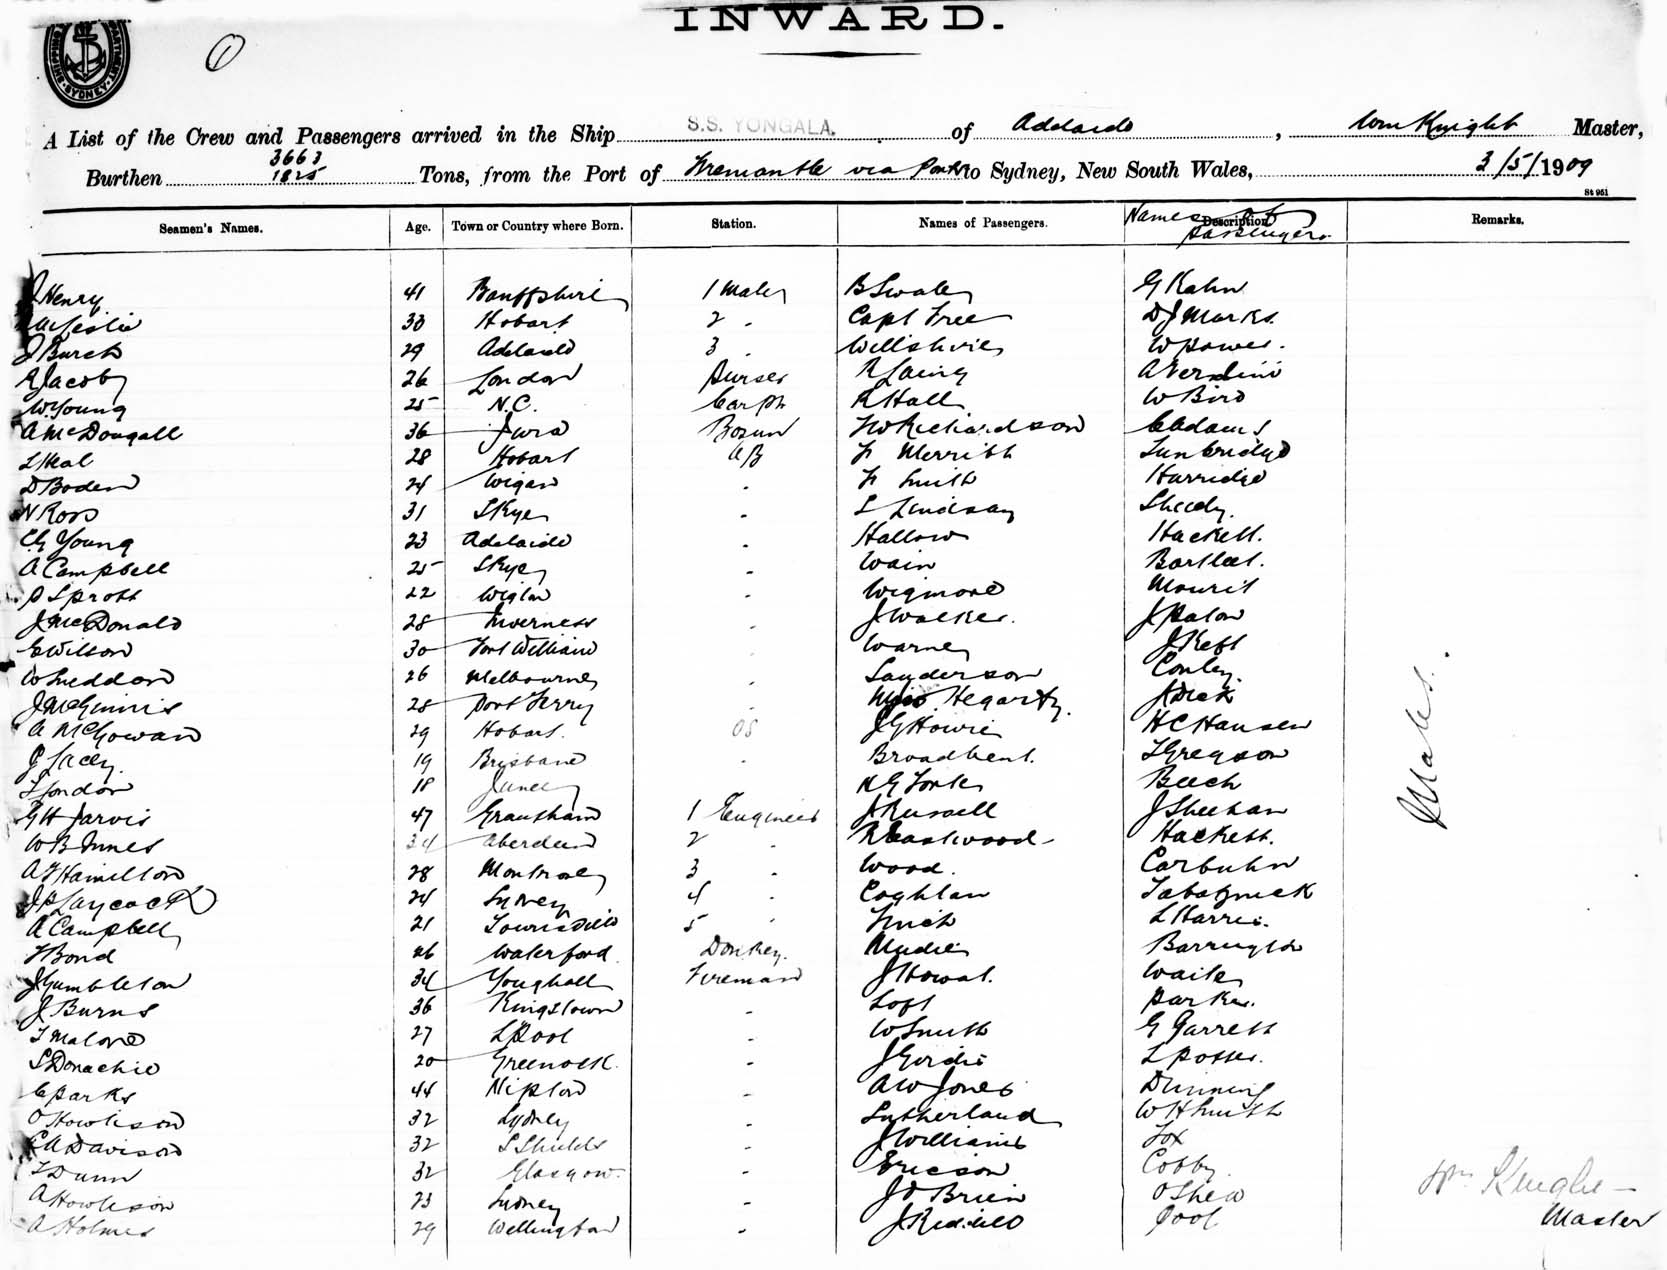 INWARD.
1
SYDNEY
A List of the Crew and Passengers arrived in the Ship S.S. YONGALA. of Adelaide, Wm Knight Master,
3663
Burthen 1825 Tons, from the Port of Fremantle via Ports to Sydney, New South Wales, 3/5/1909
St 951
Seamen's Names. Age. Town or Country where Born. Station. Names of Passengers. Description Names of Passengers Remarks.
J Henry 41 Banffshire 1 Mate B Swale G Kahn
Leslie 33 Hobart 2 . Capt Free D J Marks.
J Burch 29 Adelaide 3 . Willshire W Power.
R Jacoby 26 London Purser R Laing A
W. Young 25 N.C. Carptr R Hall W Bird
A McDougall 36 Jura Bosun F W Richardson C Adams
28 Hobart AB F Merrith Tunbridge
D Boden 24 Wigan . F Smith Harridge
N Ross 31 Skye . S Lindsay Sheedy.
C G Young 23 Adelaide . Hallow Hackett.
A Campbell 25 Skye . Wain Bartlet.
P Sprott 22 Wigton . Wigmore
J McDonald 28 Inverness . J Walker. J Paton
E Wilson 30 Fort William . Warne J Keft
W Sneddon 26 Melbourne . Sanderson Conley.
J McGinnis 28 Port Ferry . Miss Hegarty. J Dick
A McGowan 29 Hobart. OS J G Howie H C Hansen
J Lacey. 19 Brisbane . Broadbent. T Gregson
T London 18 Junee Beech
G H Jarvis 47 Grantham 1 Engineer J Russell J Sheehan
W B Innes 34 Aberdeen 2 . R Eastwood Hackett.
A F Hamilton 28 Montrose 3 . Wood. Carbuhn
J P Laycock 24 Sydney 4 . Coghlan Tabatznick
A Campbell 21 Townsville 5 . Finch L Harris.
T Bond 26 Waterford. Donkey. Mudie Barrington
J Gumbleton 34 Youghall Fireman J Howat. Waite
J Burns 36 Kingstown . Loft Parker.
T Malone 27 L'Pool . W Smith G Garrett
S Donachie 20 Greenock. . J Gordie L Potter.
C Parks 44 Nipton . A W Jones Dunning
O Howlison 32 Sydney . Sutherland W H Smith
C A Davison 32 S Shields . J Williams Fox
T Dunn 32 Glasgow. . Ericson Cobby.
A Howlison 23 Sydney . J O Brien O Shea
A Holmes 29 Wellington . J Riddell Pool
Males.
Wm Knight
Master